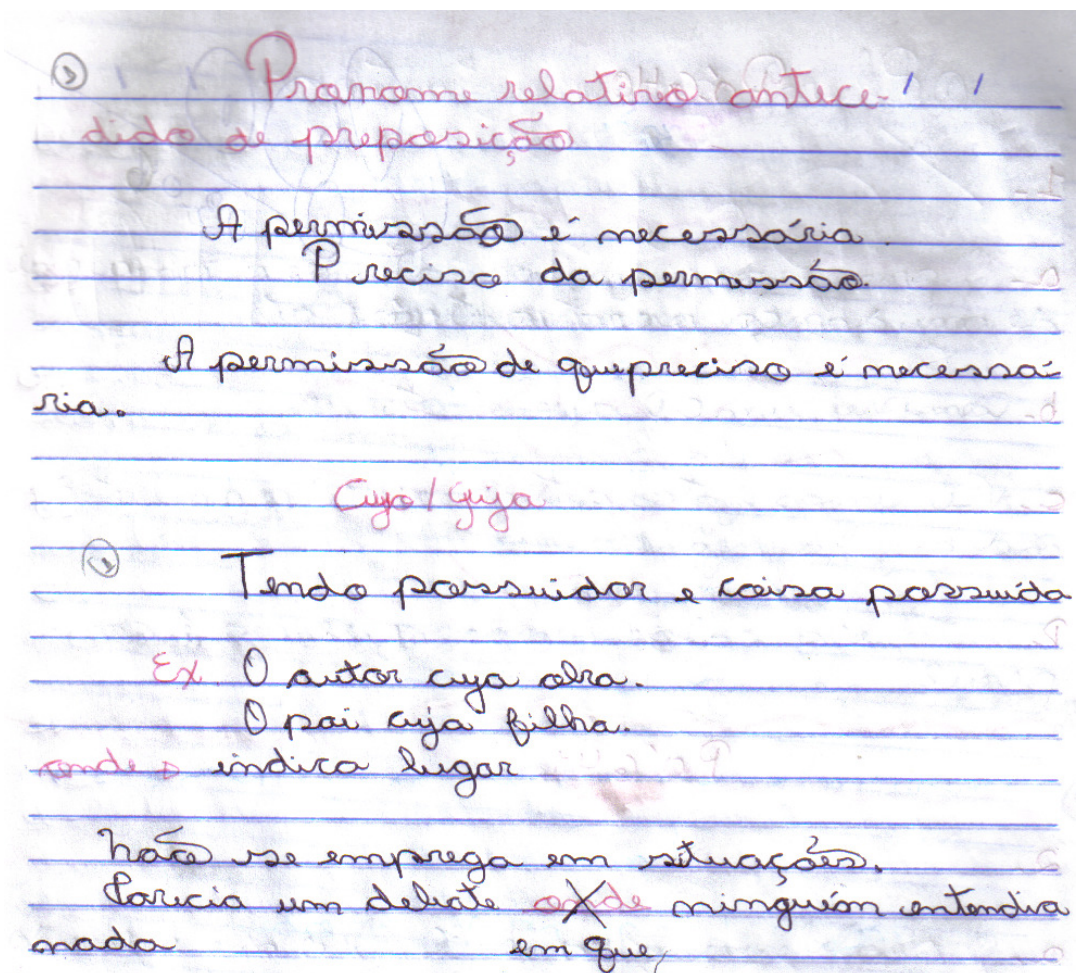 Pronome relativo antece-
dido de preposição
A permissão é necessária.
Preciso da permissão.
A permissão de que preciso é necessá-
ria.
Cujo / Cuja
Tendo possuidor e coisa possuída
Ex O autor cuja obra.
O pai cuja filha.
onde → indica lugar
Não se emprega em situações.
Parecia um debate onde ninguém entendia
nada em que